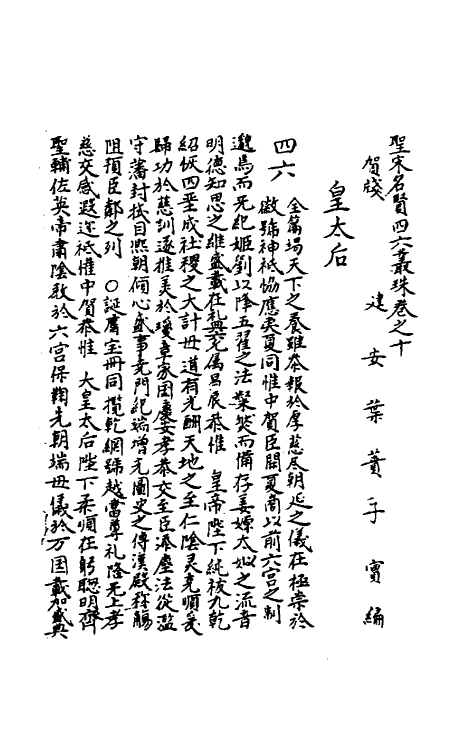 聖宋名賢四六叢珠卷之十
建安葉蕡子實編
賀牋
皇太后
四六
金篇埸天下之養雖恭報於厚慈尽朝廷之儀在極崇於
徽號神祗協應夷夏同惟中賀臣聞夏商以前六宫之制
邈焉而无紀姬劉以降五翟之法粲然而備存姜嫄太姒之流音
明德知思之雄盛載在礼典允属昌辰恭惟　皇帝陛下純被九乾
紹恢四聖成社稷之大計毋道有光酬天地之至仁陰灵克順爰
歸功於慈訓遂推美於瓊章家国慶安孝恭交至臣添塵法從濫
守藩封祗目熙朝傾心盛事堯門紀瑞增光圖史之傳漢殿稱觴
阻預臣鄰之列　〇誕膺宝冊同攬乾綱號越當尊礼隆无上孝
慈交感遐迩祗惟中賀恭惟　大皇太后陛下柔順在躬聦明齊
聖輔佐英帝肅陰教於六宫保鞠先朝端毋儀於万国載加盛典